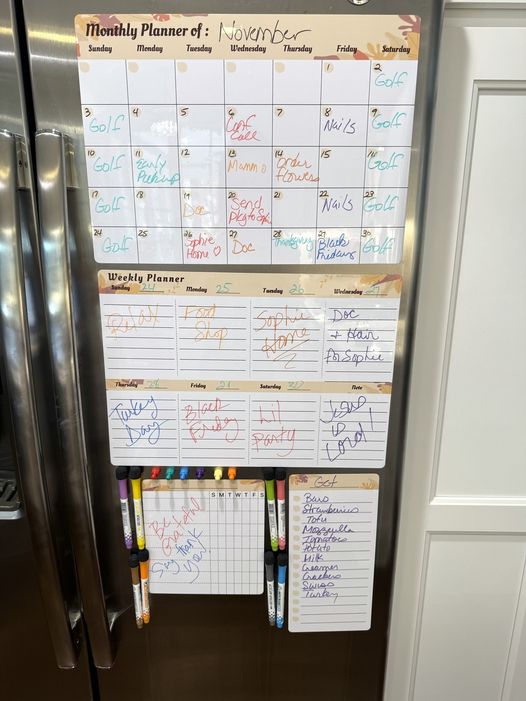 Monthly Planner of: November
Sunday Monday Tuesday Wednesday Thursday Friday Saturday
1 2
Golf
3 4 5 6 7 8 9
Golf Conf Call Nails Golf
10 11 12 13 14 15 16
Golf Early Pickup Mammo Order Flowers Golf
17 18 19 20 21 22 23
Golf Doc Send Pkg to Nails Golf
24 25 26 27 28 29 30
Golf Sophie Home ♡ Doc Thanksgiving Black Friday Golf
Weekly Planner
Sunday 24 Monday 25 Tuesday 26 Wednesday 27
Relax
Food Shop
Sophie Home
Doc
+ Hair
for Sophie
Thursday 28 Friday 29 Saturday 30 Note
Turkey Day
Black Friday
Lil Party
Jesus
is
Lord!
S M T W T F S
Be
Grateful
Say Thank
You!
Get
Bars
Strawberries
Tofu
Mozzarella
Tomatoes
Potato
Milk
Creamer
Crackers
Swiss
Turkey